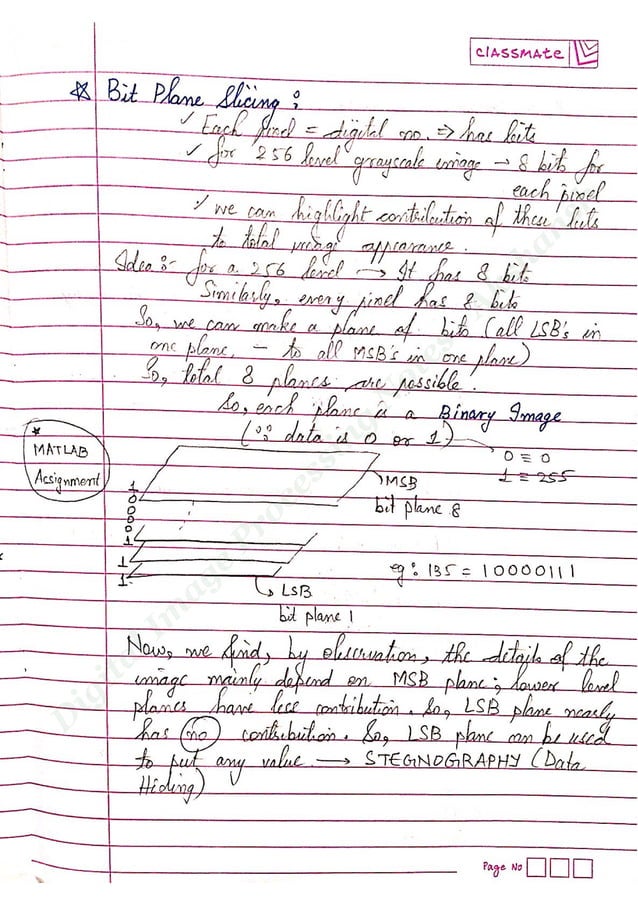 classmate
* Bit Plane Slicing :
✓ Each pixel = digital no. ⇒ has bits
✓ for 256 level grayscale image → 8 bits for
each pixel
✓ we can highlight contribution of these bits
to total image appearance.
Idea :- for a 256 level → It has 8 bits
Similarly, every pixel has 8 bits
So, we can make a plane of bits (all LSB's in
one plane, - to all MSB's in one plane)
So, total 8 planes are possible.
So, each plane is a Binary Image
(∵ data is 0 or 1)
0 ≡ 0
1 ≡ 255
*
MATLAB
Assignment
MSB
bit plane 8
1
0
0
0
0
1
1
1
LSB
bit plane 1
eg: 135 = 10000111
Now, we find, by observation, the details of the
image mainly depend on MSB plane; lower level
planes have less contribution. So, LSB plane nearly
has no contribution. So, LSB plane can be used
to put any value → STEGNOGRAPHY (Data
Hiding)
Page No